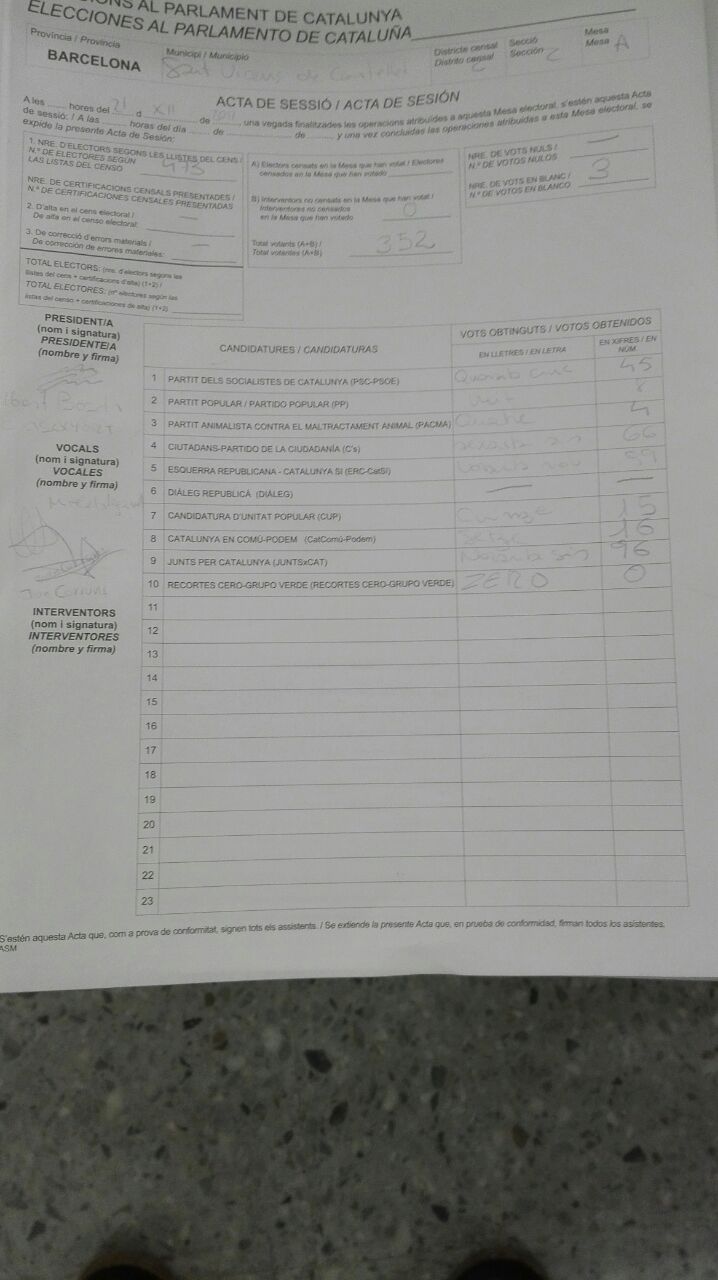 ELECCIONS AL PARLAMENT DE CATALUNYA
ELECCIONES AL PARLAMENTO DE CATALUÑA
Província / Provincia
BARCELONA
Municipi / Municipio
Sant Vicenç de Castellet
Districte censal
Distrito censal
2
Secció
Sección
2
Mesa
Mesa A
ACTA DE SESSIÓ / ACTA DE SESIÓN
A les ...... hores del 21 d XII de ......, una vegada finalitzades les operacions atribuïdes a aquesta Mesa electoral, s'estén aquesta Acta
de sessió: / A las ...... horas del día ...... de ...... de ...... y una vez concluidas las operaciones atribuidas a esta Mesa electoral, se
expide la presente Acta de Sesión:
1. NRE. D'ELECTORS SEGONS LES LLISTES DEL CENS /
N.º DE ELECTORES SEGÚN
LAS LISTAS DEL CENSO 473
NRE. DE CERTIFICACIONS CENSALS PRESENTADES /
N.º DE CERTIFICACIONES CENSALES PRESENTADAS
2. D'alta en el cens electoral /
De alta en el censo electoral: —
3. De correcció d'errors materials /
De corrección de errores materiales: —
TOTAL ELECTORS: (nre. d'electors segons les
llistes del cens + certificacions d'alta) (1+2) /
TOTAL ELECTORES: (nº electores según las
listas del censo + certificaciones de alta) (1+2)
A) Electors censats en la Mesa que han votat / Electores
censados en la Mesa que han votado
B) Interventors no censats en la Mesa que han votat /
Interventores no censados
en la Mesa que han votado 0
Total votants (A+B) /
Total votantes (A+B) 352
NRE. DE VOTS NULS /
N.º DE VOTOS NULOS —
NRE. DE VOTS EN BLANC /
N.º DE VOTOS EN BLANCO 3
PRESIDENT/A
(nom i signatura)
PRESIDENTE/A
(nombre y firma)
VOCALS
(nom i signatura)
VOCALES
(nombre y firma)
INTERVENTORS
(nom i signatura)
INTERVENTORES
(nombre y firma)
CANDIDATURES / CANDIDATURAS
VOTS OBTINGUTS / VOTOS OBTENIDOS
EN LLETRES / EN LETRA
EN XIFRES / EN NÚM.
1 PARTIT DELS SOCIALISTES DE CATALUNYA (PSC-PSOE) Quaranta cinc 45
2 PARTIT POPULAR / PARTIDO POPULAR (PP) Vuit 8
3 PARTIT ANIMALISTA CONTRA EL MALTRACTAMENT ANIMAL (PACMA) Quatre 4
4 CIUTADANS-PARTIDO DE LA CIUDADANÍA (C's) seixanta sis 66
5 ESQUERRA REPUBLICANA - CATALUNYA SÍ (ERC-CatSí) 99
6 DIÀLEG REPUBLICÀ (DIÀLEG) — —
7 CANDIDATURA D'UNITAT POPULAR (CUP) Quinze 15
8 CATALUNYA EN COMÚ-PODEM (CatComú-Podem) setze 16
9 JUNTS PER CATALUNYA (JUNTSxCAT) Noranta sis 96
10 RECORTES CERO-GRUPO VERDE (RECORTES CERO-GRUPO VERDE) ZERO 0
11
12
13
14
15
16
17
18
19
20
21
22
23
S'estén aquesta Acta que, com a prova de conformitat, signen tots els assistents. / Se extiende la presente Acta que, en prueba de conformidad, firman todos los asistentes.
ASM